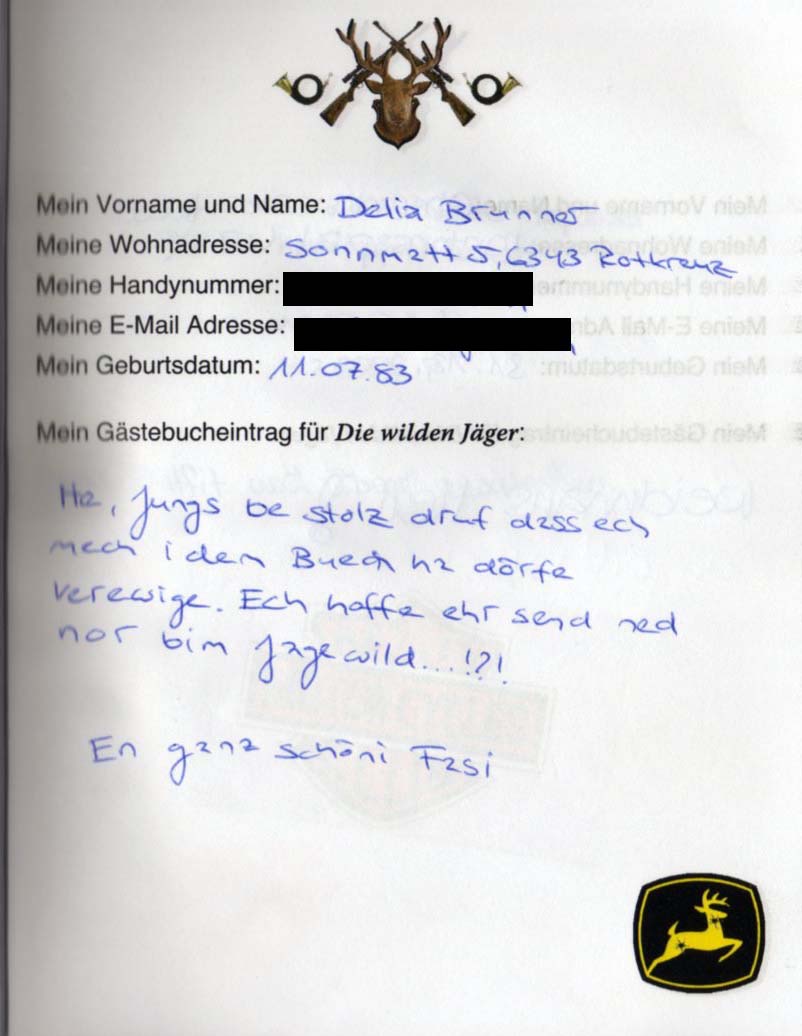 Mein Vorname und Name: Delia Brunner
Meine Wohnadresse: Sonnmatt 5, 6343 Rotkreuz
Meine Handynummer:
Meine E-Mail Adresse:
Mein Geburtsdatum: 11.07.83
Mein Gästebucheintrag für Die wilden Jäger:
He, Jungs be stolz druf dass ech
mech i dem Buech ha dörfe
verewige. Ech hoffe ehr send ned
nor bim Jage wild...!?!
En ganz schöni Fasi